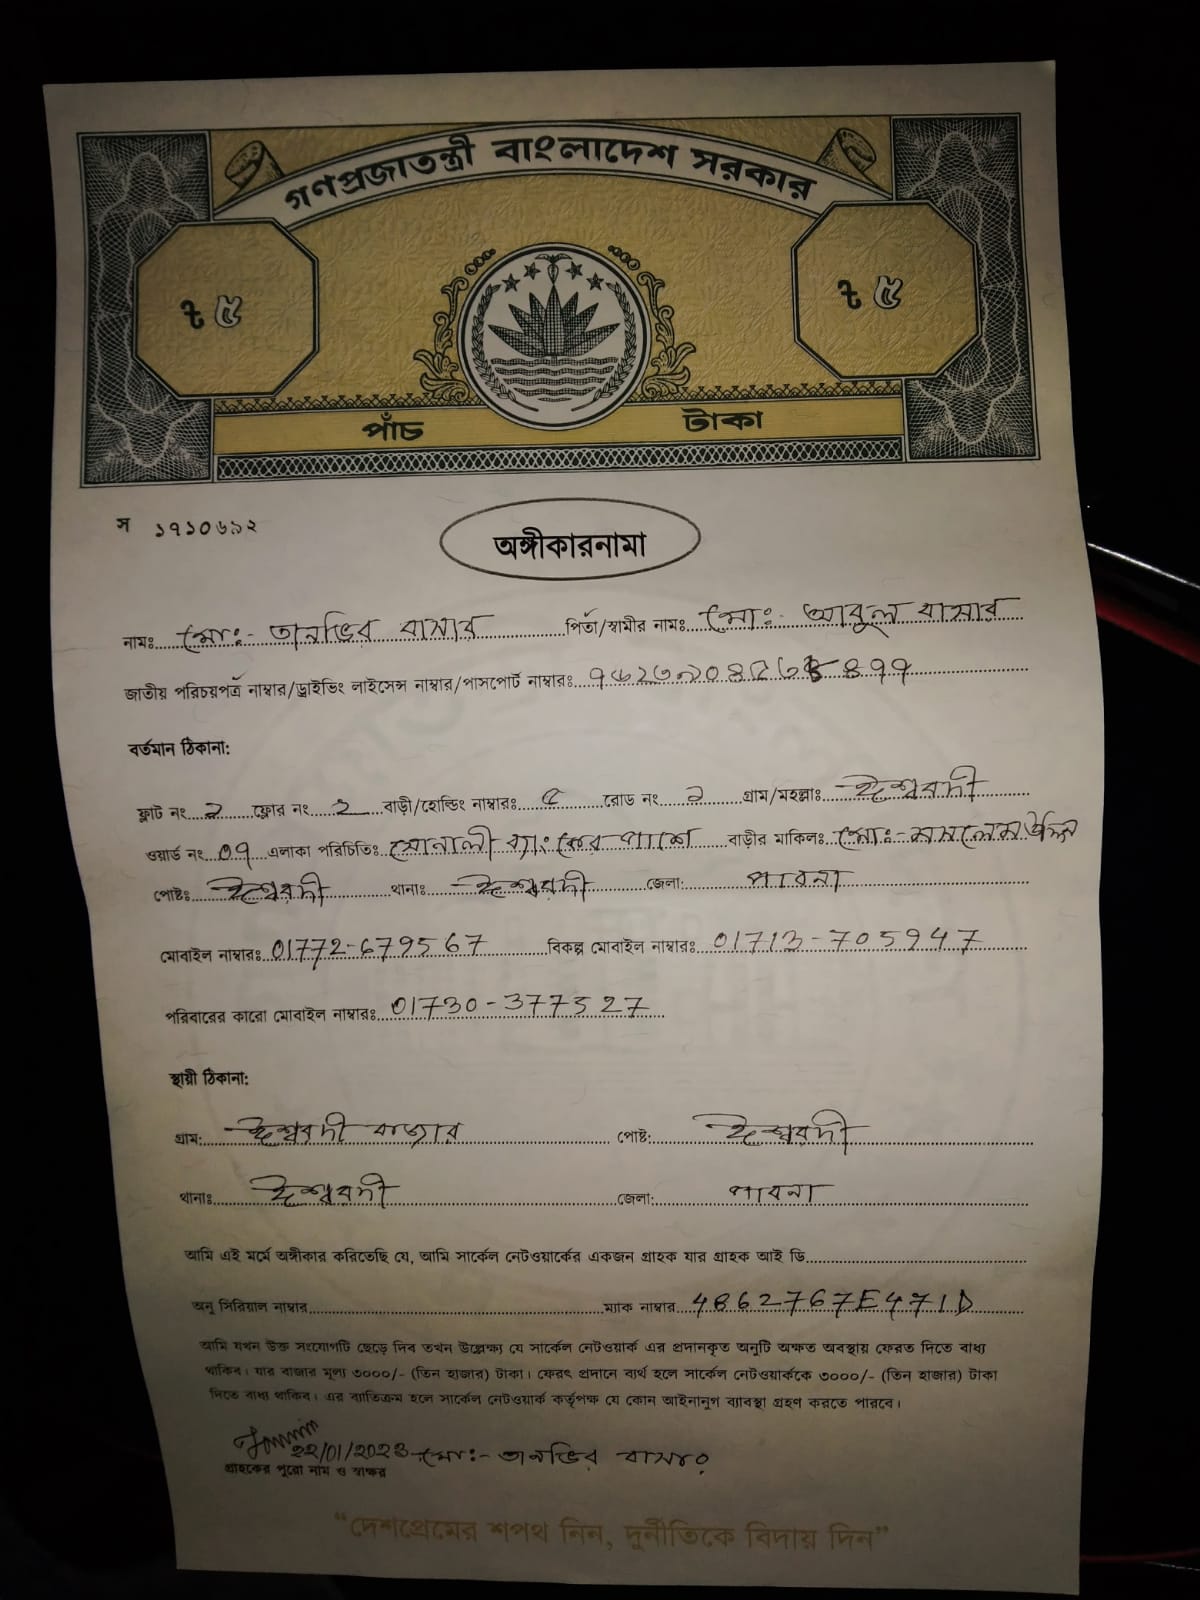 গণপ্রজাতন্ত্রী বাংলাদেশ সরকার
৳ ৫ ৳ ৫
পাঁচ টাকা
স ১৭১০৬৯২
অঙ্গীকারনামা
নামঃ মোঃ- তানভির বাসার পিতা/স্বামীর নামঃ মোঃ- আবুল বাসার
জাতীয় পরিচয়পত্র নাম্বার/ড্রাইভিং লাইসেন্স নাম্বার/পাসপোর্ট নাম্বারঃ
বর্তমান ঠিকানা:
ফ্লাট নং ২ ফ্লোর নং ২ বাড়ী/হোল্ডিং নাম্বারঃ ৫ রোড নং ২ গ্রাম/মহল্লাঃ ঈশ্বরদী
ওয়ার্ড নং ০৭ এলাকা পরিচিতিঃ সোনালী ব্যাংকের পাশে বাড়ীর মাকিলঃ মোঃ- মসলেম উদ্দিন
পোষ্টঃ ঈশ্বরদী থানাঃ ঈশ্বরদী জেলা: পাবনা
মোবাইল নাম্বারঃ 01772-679567 বিকল্প মোবাইল নাম্বারঃ 01713-705947
পরিবারের কারো মোবাইল নাম্বারঃ 01730-377527
স্থায়ী ঠিকানা:
গ্রাম: ঈশ্বরদী বাজার পোষ্ট: ঈশ্বরদী
থানাঃ ঈশ্বরদী জেলা: পাবনা
আমি এই মর্মে অঙ্গীকার করিতেছি যে, আমি সার্কেল নেটওয়ার্কের একজন গ্রাহক যার গ্রাহক আই ডি
অনু সিরিয়াল নাম্বার ম্যাক নাম্বার 4862767E471D
আমি যখন উক্ত সংযোগটি ছেড়ে দিব তখন উল্লেক্ষ্য যে সার্কেল নেটওয়ার্ক এর প্রদানকৃত অনুটি অক্ষত অবস্থায় ফেরত দিতে বাধ্য
থাকিব। যার বাজার মূল্য ৩০০০/- (তিন হাজার) টাকা। ফেরৎ প্রদানে ব্যর্থ হলে সার্কেল নেটওয়ার্ককে ৩০০০/- (তিন হাজার) টাকা
দিতে বাধ্য থাকিব। এর ব্যাতিক্রম হলে সার্কেল নেটওয়ার্ক কর্তৃপক্ষ যে কোন আইনানুগ ব্যাবস্থা গ্রহণ করতে পারবে।
22/01/2023 মোঃ- তানভির বাসার
গ্রাহকের পুরো নাম ও স্বাক্ষর
“দেশপ্রেমের শপথ নিন, দুর্নীতিকে বিদায় দিন”